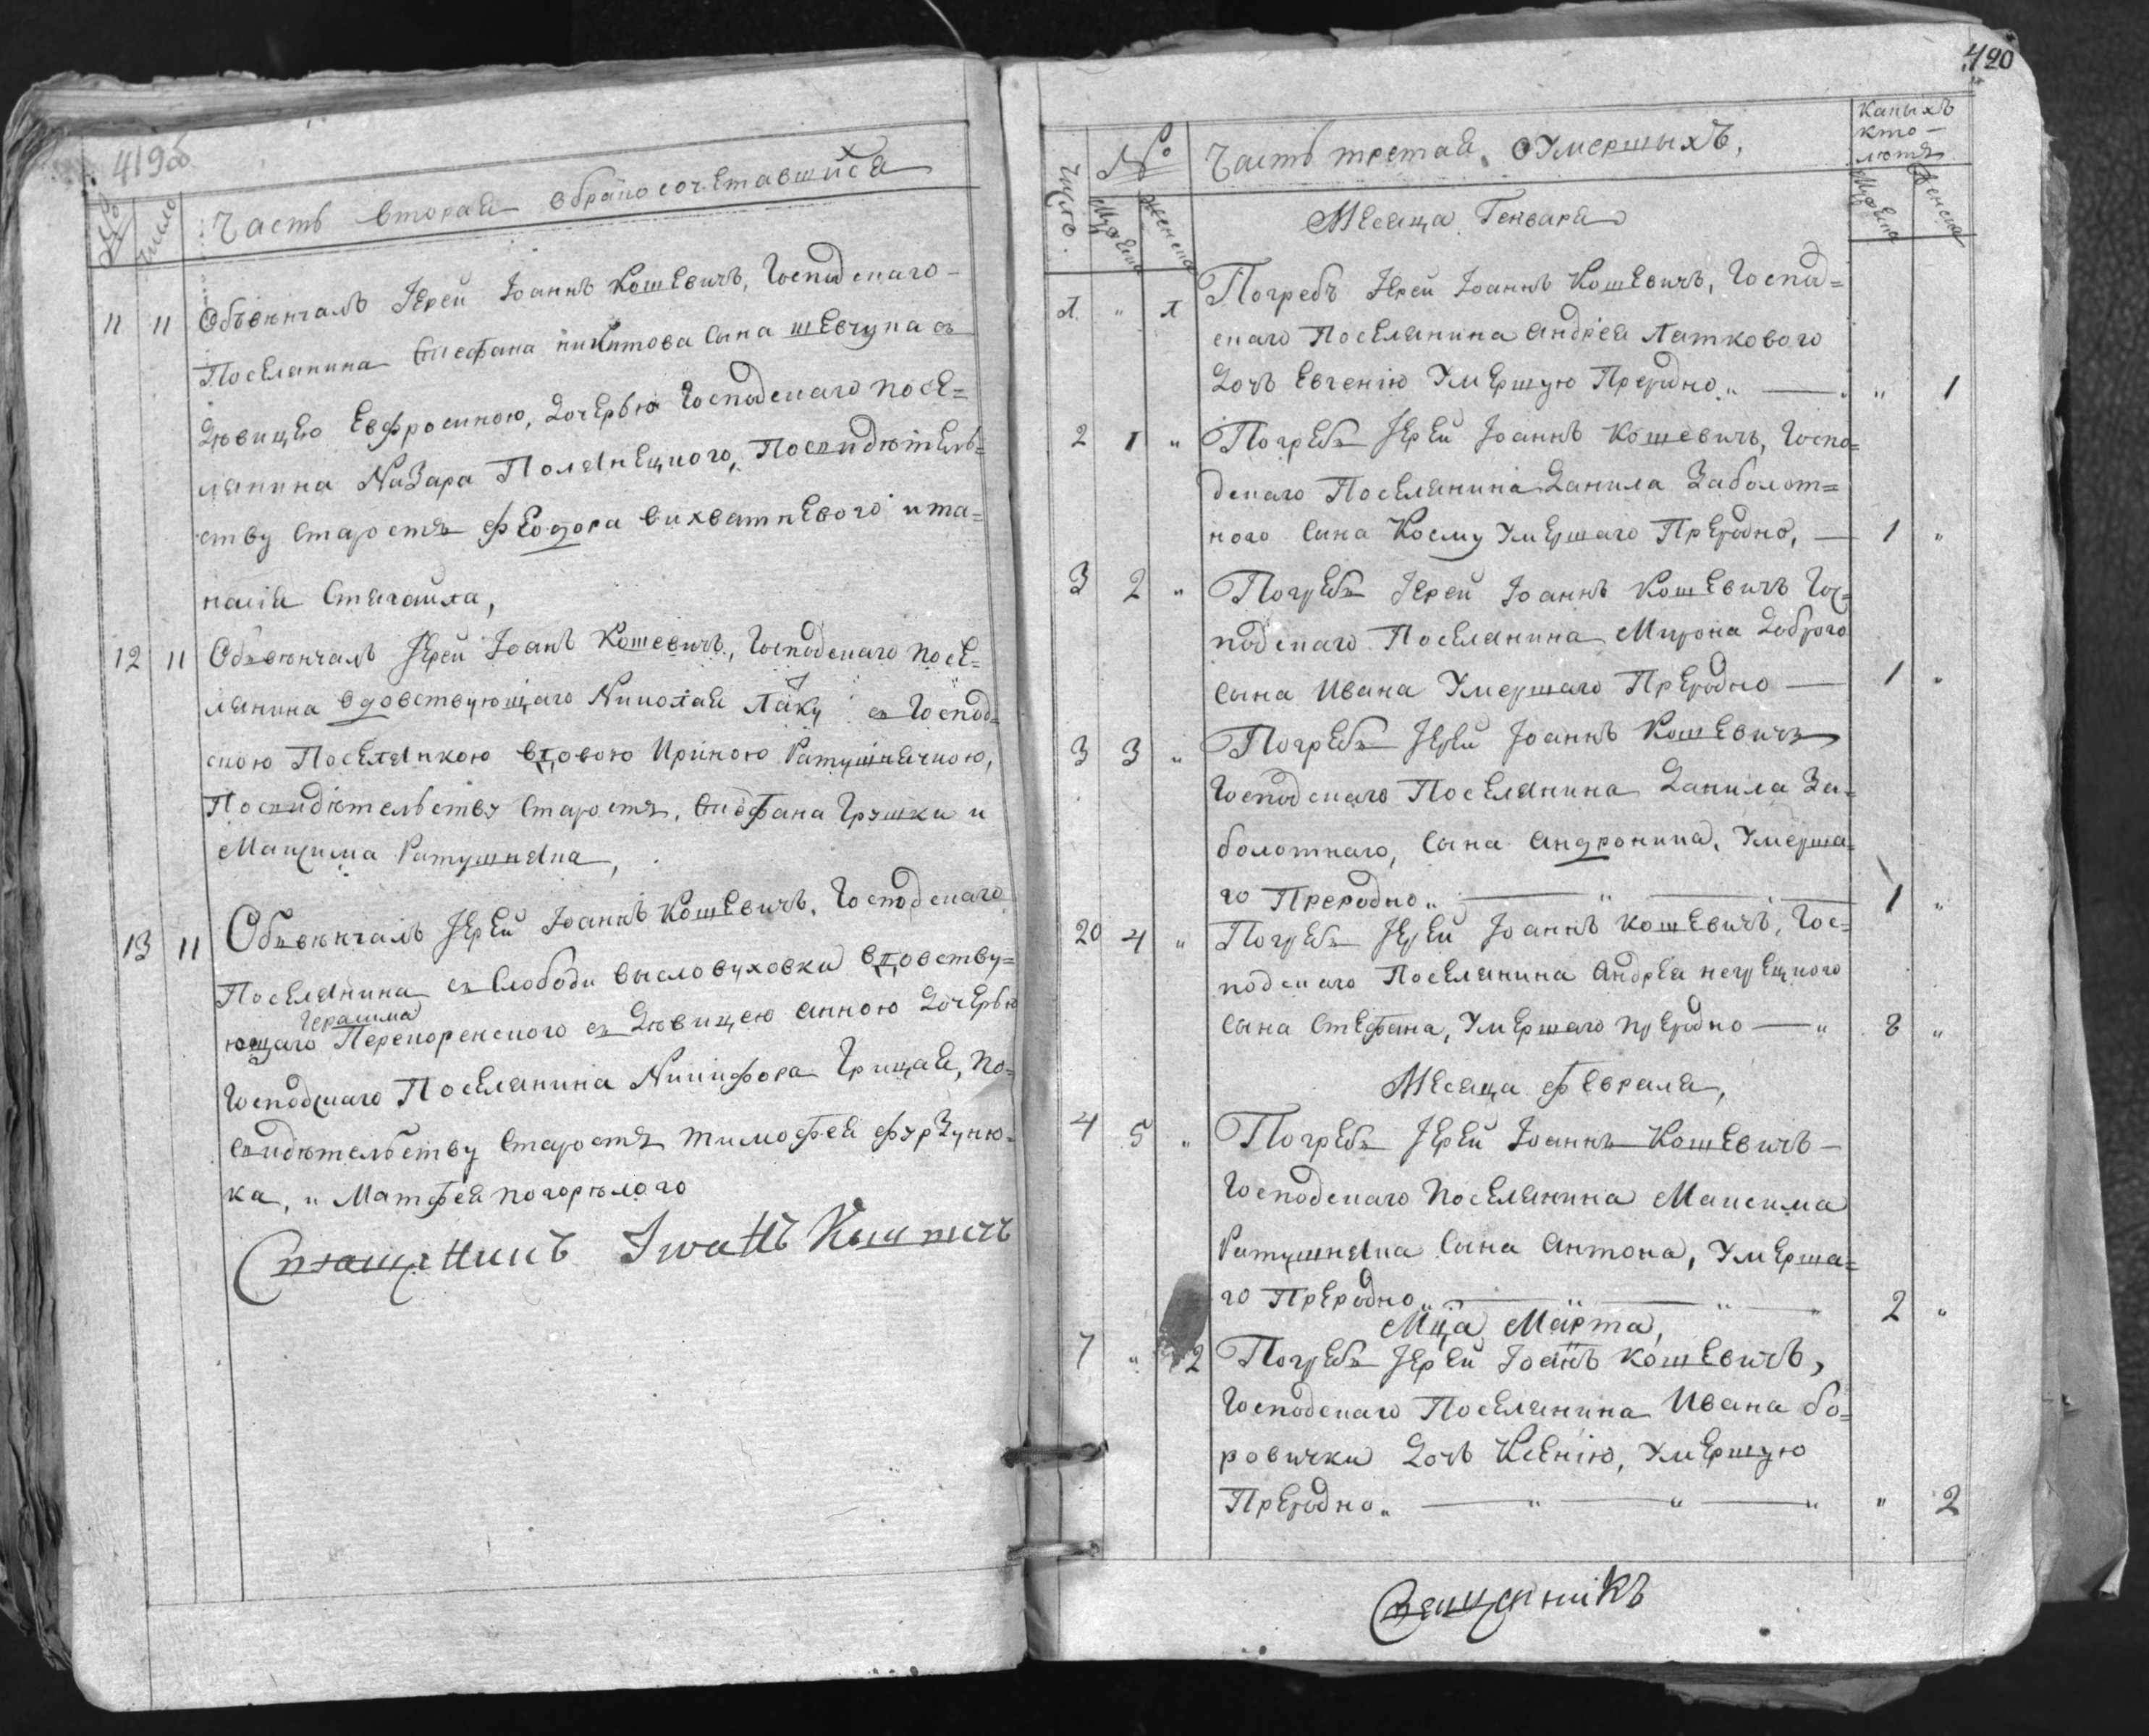 419об
№
число
Часть вторая о бракосочетавшихся
11 11 Обвѣнчалъ Іерей Іоаннъ Кошевичъ, Господскаго
Поселянина Стефана никитова сына шевчука съ
Дѣвицею Евфросиною, Дочерью Господскаго посе=
лянина Назара Полянецкого, Посвидѣтель=
ству Старостъ Феодора вихватневого и та=
насія
12 11 Обвѣнчалъ Іерей Іоанъ Кошевичъ, Господскаго посе=
лянина вдовствующаго Николая Лаку съ Господ=
скою Поселянкою вдовою Ириною Ратушнячкою,
Посвидѣтельству Старостъ, Стефана Грушки и
Максима Ратушняка,
13 11 Обвѣнчалъ Іерей Іоаннъ Кошевичъ, Господскаго
Поселянина съ Слободи высловуховки вдовству=
Герасима
ющаго Перекоренского съ Дѣвицею анною Дочерью
Господскаго Поселянина Никифора Грицая, по=
свидѣтельству Старостъ тимофея фурзуню=
ка, и Матфея погорѣлого
Священникъ Іоаннъ Кошевичъ
420
Число.
№
Мужеска
Женска
Часть третая, о Умершыхъ,
Какыхъ
кто
лютъ
Мужеска
Женска
Месяца Генваря
1 " 1 Погребъ Іерей Іоаннъ Кошевичъ, Господ=
скаго Поселянина андрея Латкового
Дочь Евгенію Умершую Природно " — " 1
2 1 " Погребъ Іерей Іоаннъ Кошевичъ, Госпо=
дскаго Поселянина Данила Заболот=
ного Сина Косму Умершаго Природно, — 1 "
3 2 " Погребъ Іерей Іоаннъ Кошевичъ Гос=
подскаго Поселянина Мирона Доброго
сына Ивана Умершаго Природно — 1 "
3 3 " Погребъ Іерей Іоаннъ Кошевичъ
Господскаго Поселянина Данила За=
болотнаго, Сына андроника, Умерша=
го Природно " — " — 1 "
20 4 " Погребъ Іерей Іоаннъ Кошевичъ, Гос=
подскаго Поселянина Андрея негрецкого
Сына Стефана, Умершаго природно — " 8 "
Месяца февраля,
4 5 " Погребъ Іерей Іоаннъ Кошевичъ —
Господскаго Поселянина Максима
Ратушняка Сына Антона, Умерша=
го Природно " — " — " — " 2 "
Мца Марта,
7 " 2 Погребъ Іерей Іоанъ Кошевичъ,
Господскаго Поселянина Ивана бо=
ровички Дочь Ксенію, Умершую
Природно " — " — " — " " 2
Священникъ